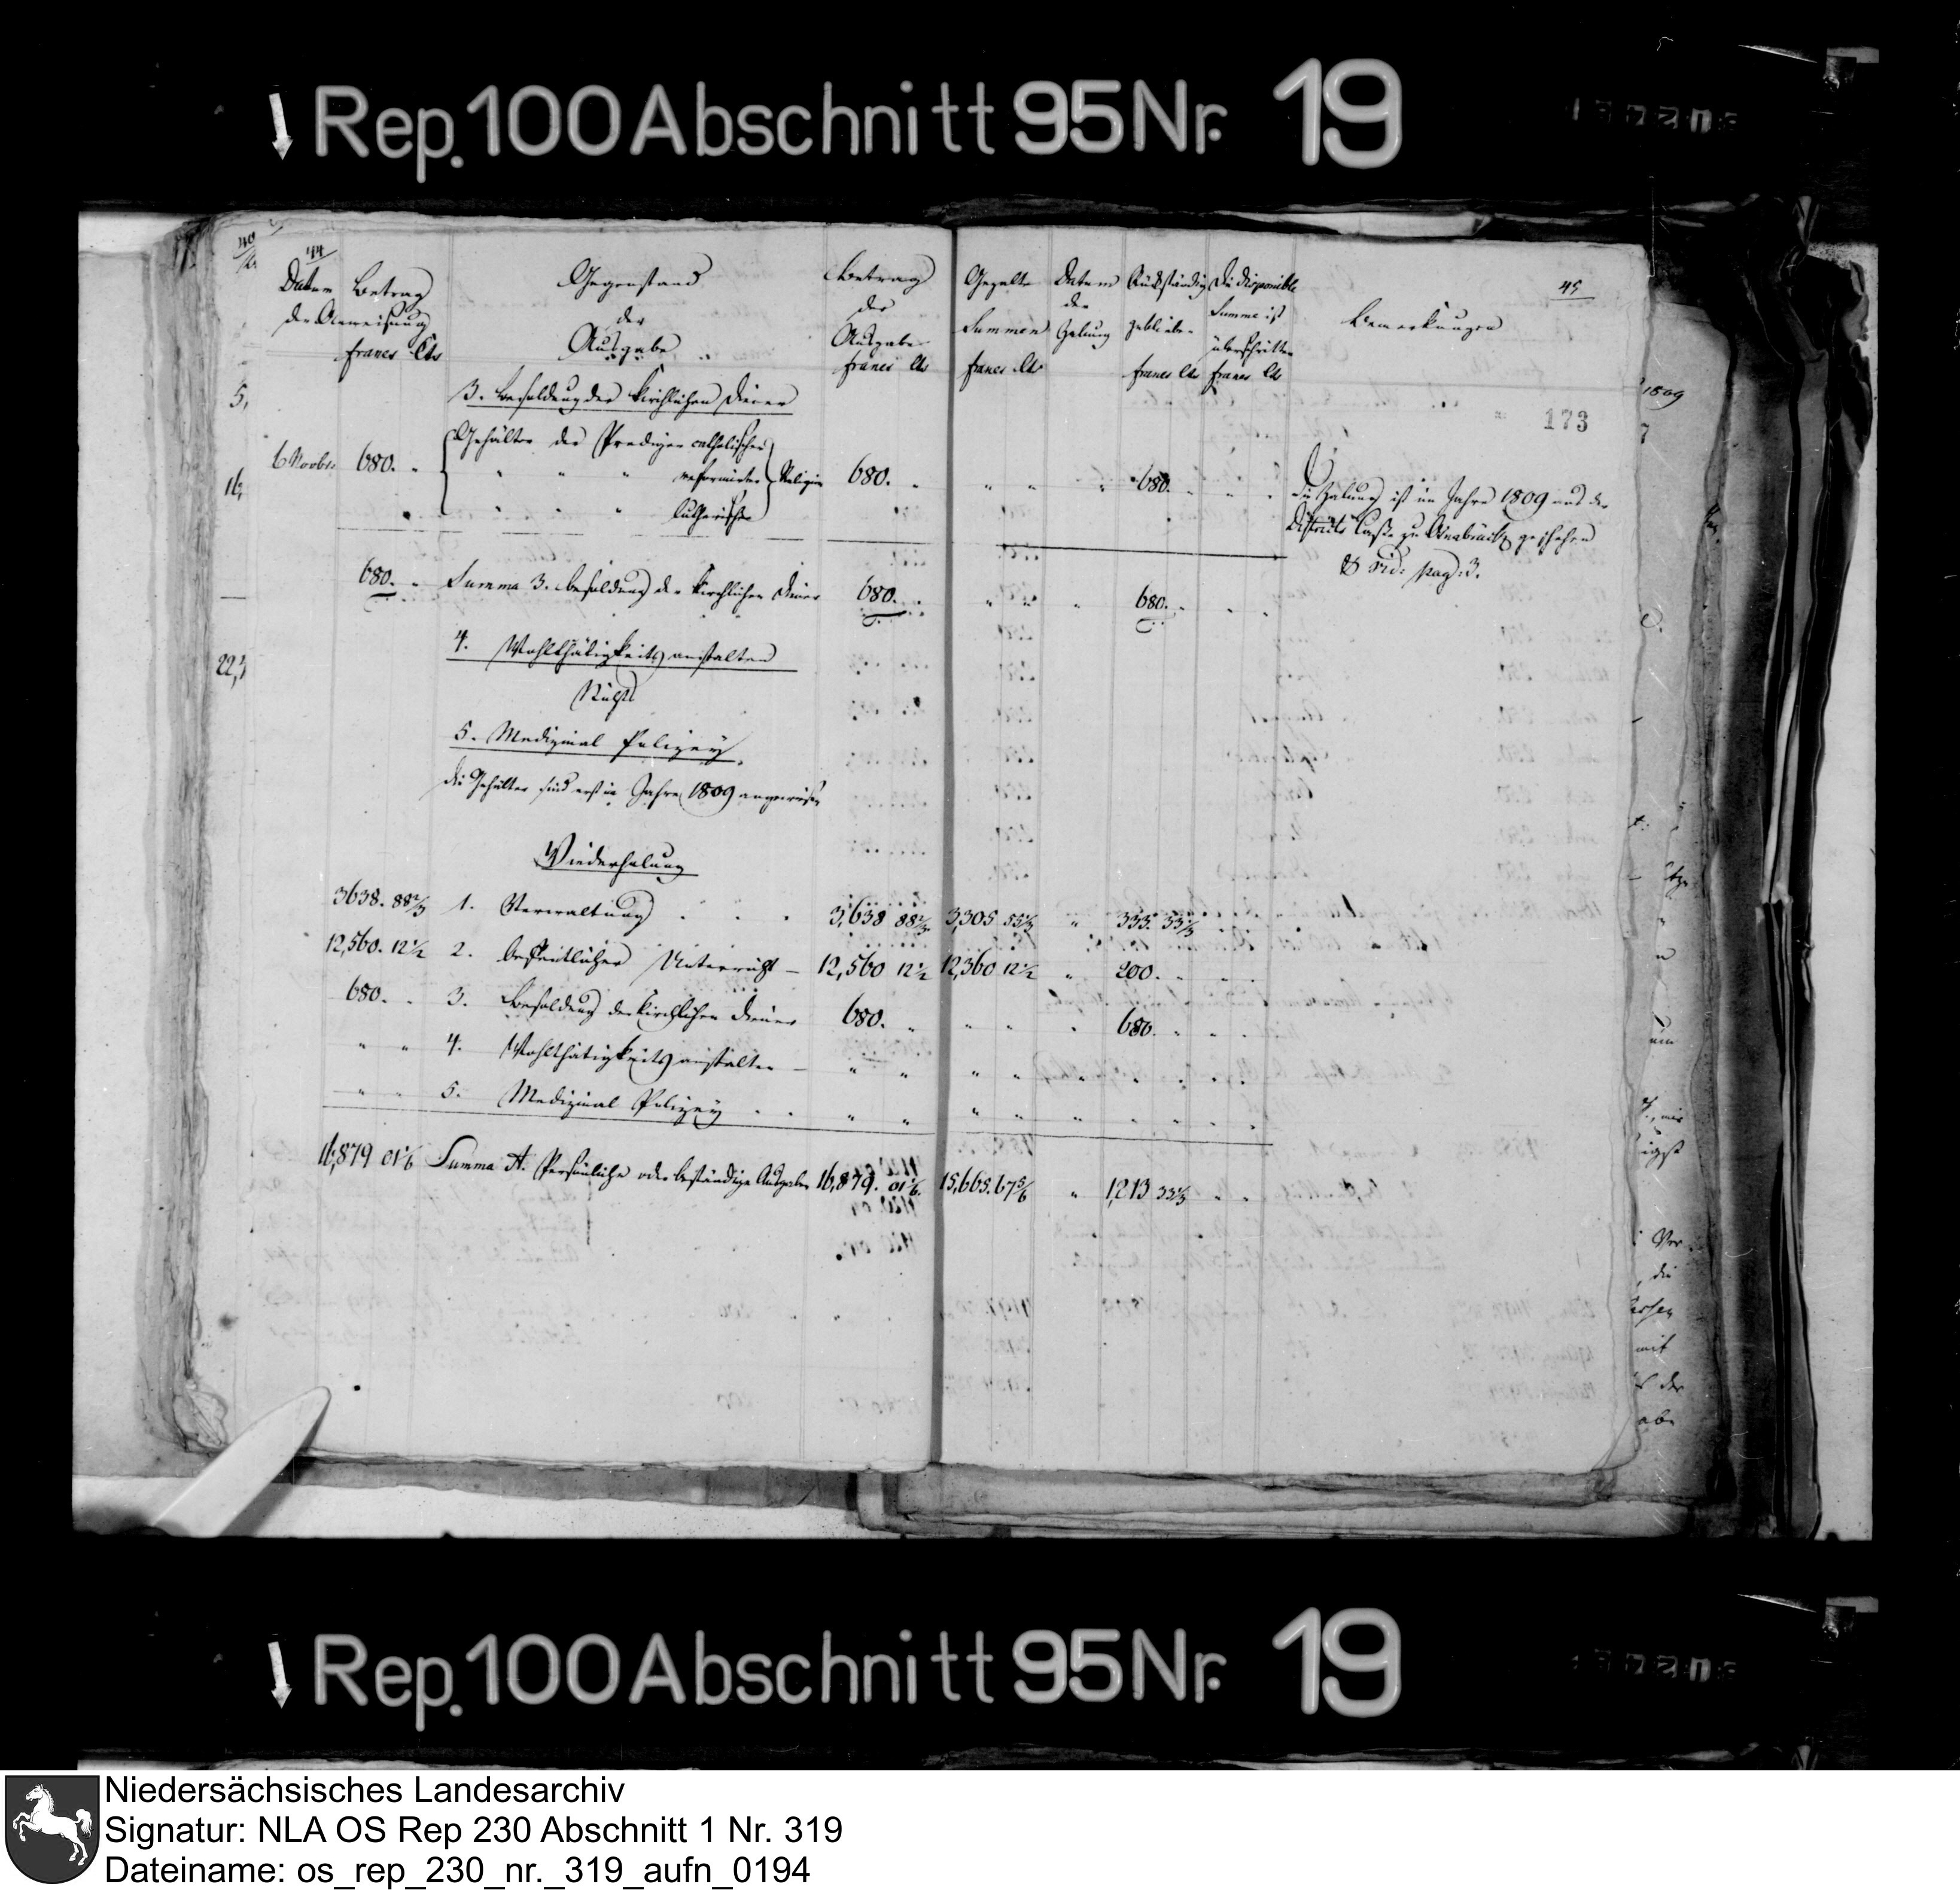 Rep. 100 Abschnitt 95 Nr. 19
44
45
Datum Betrag
der Anweisung
francs Cts
Gegenstand
der
Ausgabe
Betrag
der
Ausgabe
francs Cts
Gezalte
Summen
francs Cts
Datum
der
Zalung
Rückständig
geblieben
francs Cts
Die disponible
Summe ist
überschritten
francs Cts
Bemerkungen
173
3. Besoldung der kirchlichen Diener
Gehälter der Prediger catholischer
6 Novbr. 680. " " " " reformirter Religion 680. " " " " 680. " " "
" " " lutherischer
Die Zalung ist im Jahre 1809 aus der
Districts Casse zu Osnabrück geschehen
vid: pag: 3.
680. " Summa 3. Besoldung der kirchlichen Diener 680. " " " " 680. " " "
4. Wohlthätigkeits anstalten
Nichts
5. Medizinal Polizey.
die Gehälter sind erst im Jahre 1809 angewiesen
Wiederholung
3638. 88 2/3 1. Verwaltung . . . 3,638 88 2/3 3,305 55 1/3 " 333. 33 1/3
12,560. 12 1/2 2. Oeffentlicher Unterricht – 12,560 12 1/2 12,360 12 1/2 " 200. " " "
680. " 3. Besoldung der kirchlichen Diener 680. " " " " 680. " " "
" " 4. Wohlthätigkeits anstalten – " " " " " " " " "
" " 5. Medizinal Polizey . . " " " " " " " " "
16,879 01 1/6 Summa A. Persönliche oder beständige Ausgaben 16,879. 01 1/6. 15,665. 67 5/6 " 1,213 33 1/3 " "
Rep. 100 Abschnitt 95 Nr. 19
Niedersächsisches Landesarchiv
Signatur: NLA OS Rep 230 Abschnitt 1 Nr. 319
Dateiname: os_rep_230_nr._319_aufn_0194